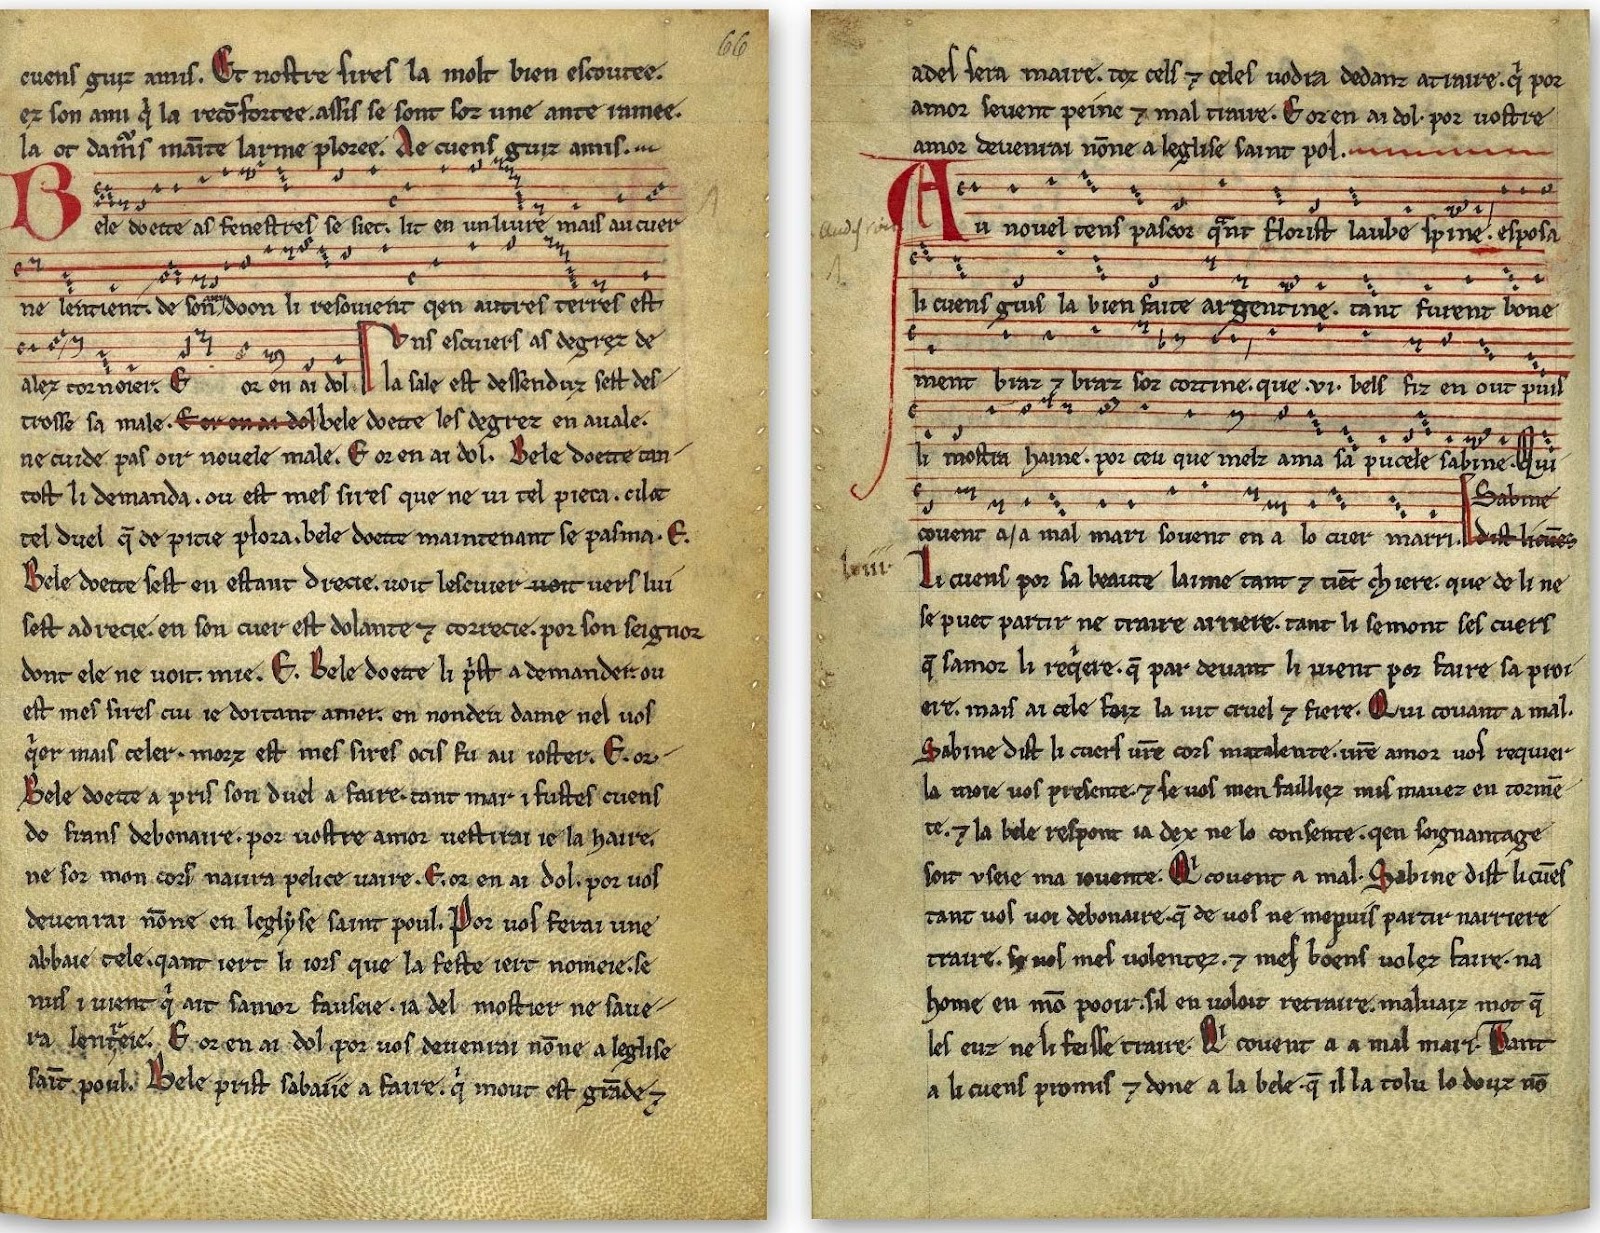 66
cuens guiz amis. Et nostre sires la molt bien escoutee.
ez son ami q̓ la recōfortee. assis se sont soz une ante ramee.
la ot dam̄s māīte larme ploree. Ae cuens guiz amis.
Bele doette as fenestres se siet. lit en un livre mais au cuer
ne lentient. de son ami doon li resovient qen autres terres est
alez tornoier. E or en ai dol. Uns escuiers as degrez de
la sale est dessenduz sest des-
trosse sa male. E or en ai dol bele doette les degrez en avale.
ne cuide pas oir novele male. E or en ai dol. Bele doette tan-
tost li demanda. ou est mes sires que ne vi tel pieca. cil ot
tel duel q̄ de pitie plora. bele doette maintenant se pasma. E.
Bele doette sest en estant drecie. voit lescuier voit vers lui
sest adrecie. en son cuer est dolante ⁊ correcie. por son seignor
dont ele ne voit mie. E. Bele doette li p̓st a demander. ou
est mes sires cui ie doi tant amer. en non deu dame nel vos
q̓er mais celer. morz est mes sires ocis fu au ioster. E. or-
Bele doette a pris son duel a faire. tant mar i fustes cuens
do frans debonaire. por vostre amor vestirai ie la haire.
ne sor mon cors naura pelice vaire. E. or en ai dol. por vos
devenrai nōne en leglyse saint poul. Por vos ferai une
abbaie tele. qant iert li iors que la feste iert nomeie. se
nus i vient q̓ ait samor fauseie. ia del mostier ne save-
ra lentreie. E or en ai dol por vos devenrai nōne a leglise
saīt poul. Bele prist sabaiie a faire. q̓ mout est grāde ⁊
ades sera maire. toz cels ⁊ celes vodra dedanz atraire. q̓ por
amor sevent peine ⁊ mal traire. E or en ai dol. por vostre
amor devenrai nōne a leglise saint pol.
Au novel tens pascor qānt florist laube spine. esposa
li cuens guis la bien faite argentine. tant furent bone
ment braz ⁊ braz soz cortine. que .vi. bels fiz en out puis
li mostra haine. por ceu que melz ama sa pucele sabine. Qui
covent a/a mal mari sovent en a lo cuer marri. Sabine
dist li cuēs
Li cuens por sa beaute laime tant ⁊ tiēt chiere. que de li ne
se puet partir ne traire arriere. tant li semont ses cuers
q̄ samor li reqiere. q̄ par devant li vient por faire sa proi
ere. mais ai cele foiz la vit cruel ⁊ fiere. Qui covant a mal.
Sabine dist li cuers vr̄e cors matalente. vr̄e amor vos requier
la moie vos presente. ⁊ se vos men failliez mis mavez en tormē-
te. ⁊ la bele respont ia dex ne lo consente. qen soignantage
soit vseie ma iovente. Qi covent a mal. Sabine dist li cuēs
tant vos voi debonaire. q̄ de vos ne me puis partir narriere
traire. se vos mes volentez. ⁊ mes boens volez faire. na
home en mō pooir. sil en voloit retraire. malvaiz mot q̄
les euz ne li feisse traire. Qi covent a a mal mari. Tant
a li cuens promis ⁊ done a la bele. q̄ il la tolu lo douz nō